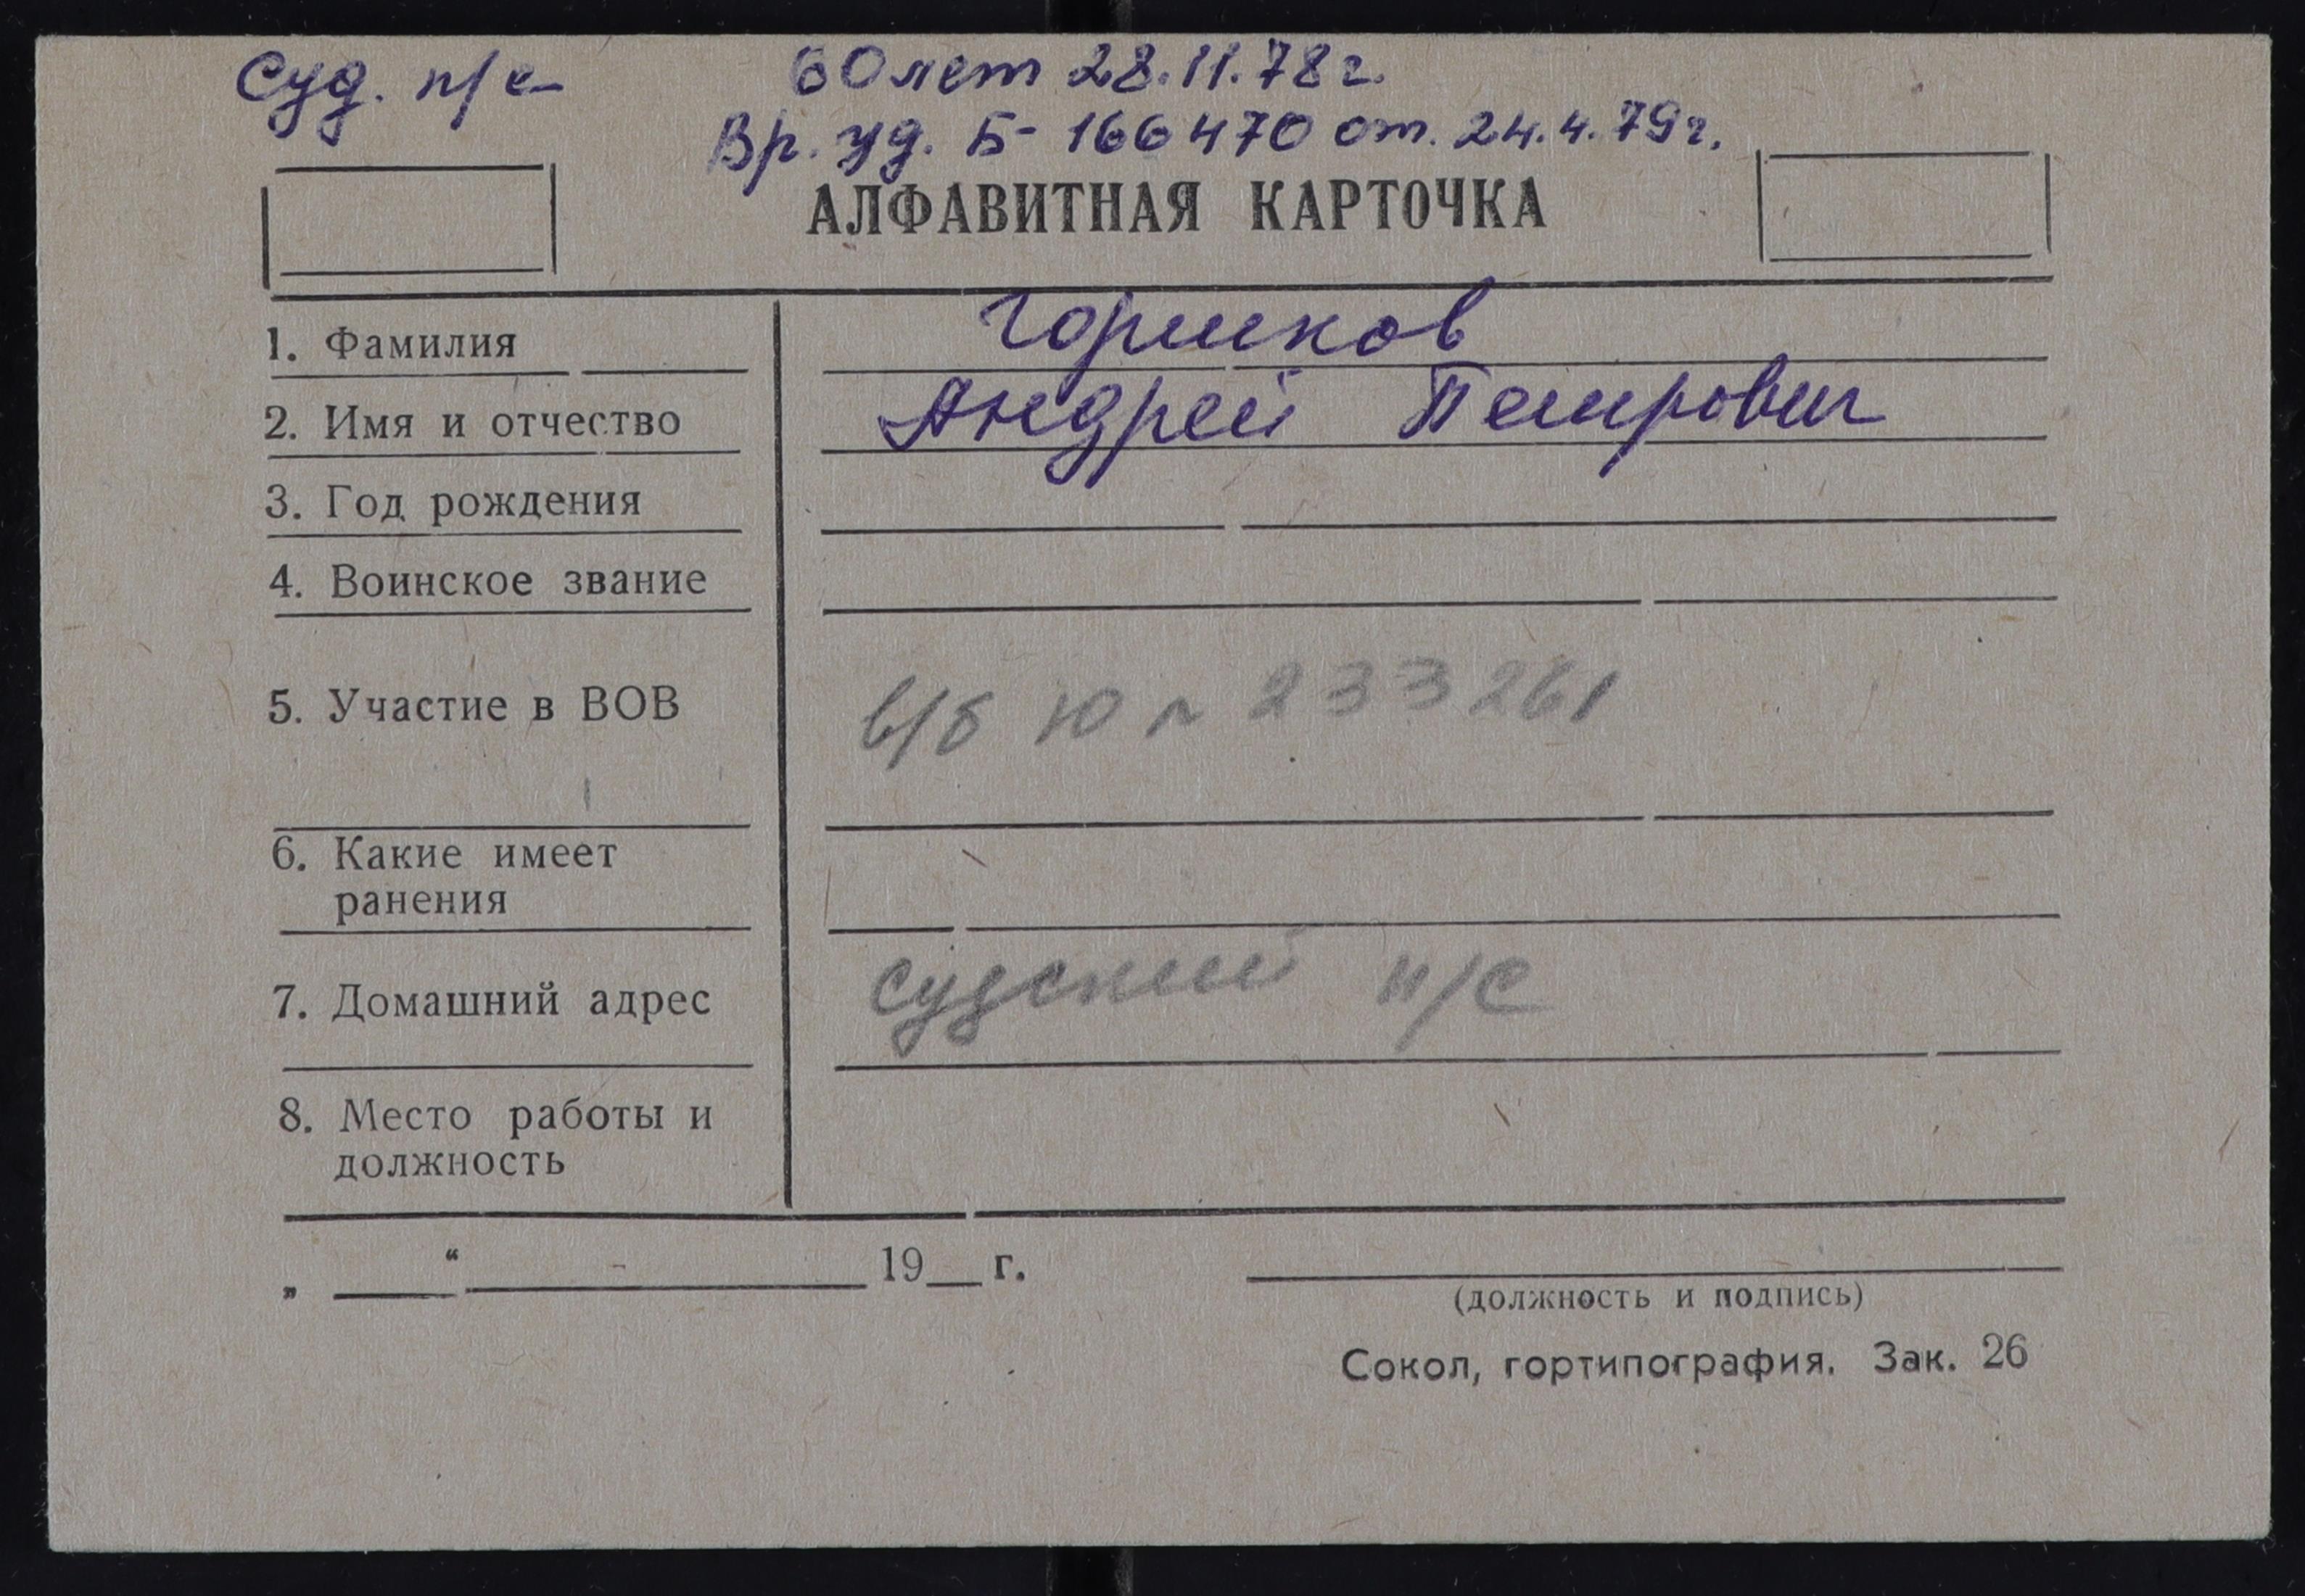 Суд. п/с 60 лет 28.11.78 г.
Вр. уд. Б- 166470 от. 24.4.79 г.
АЛФАВИТНАЯ КАРТОЧКА
1. Фамилия Горшков
2. Имя и отчество Андрей Петрович
3. Год рождения
4. Воинское звание
5. Участие в ВОВ в/б Ю № 233261
6. Какие имеет
ранения
7. Домашний адрес Судский п/с
8. Место работы и
должность
„ “ 19 г.
(должность и подпись)
Сокол, гортипография. Зак. 26